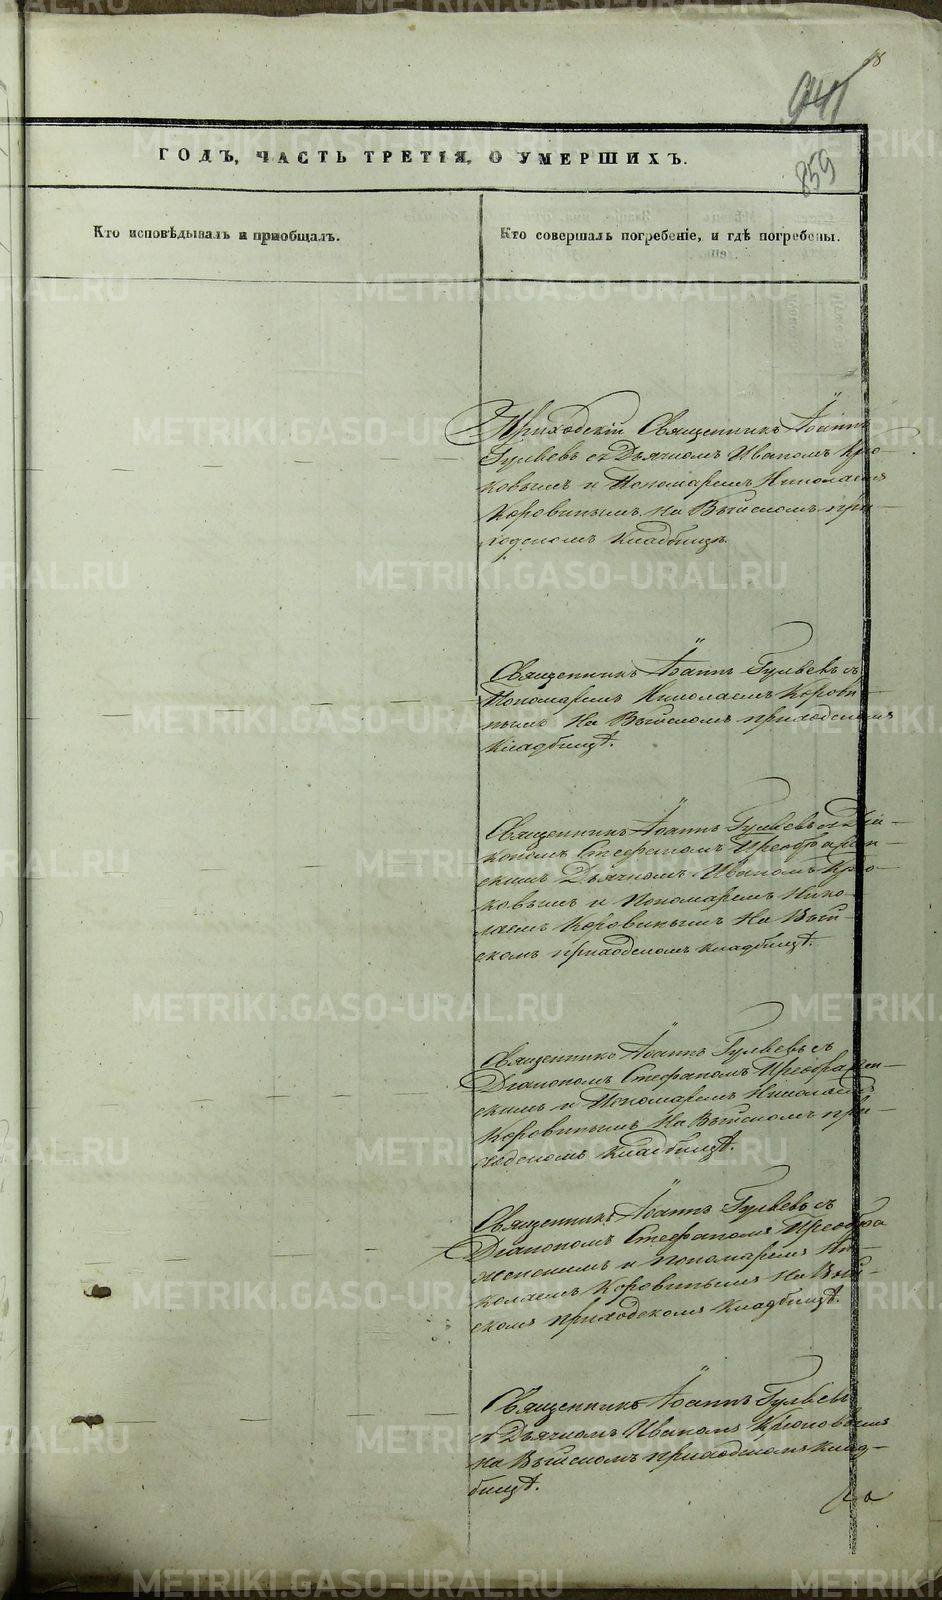 18
941
859
ГОДЪ, ЧАСТЬ ТРЕТІЯ, О УМЕРШИХЪ.
Кто исповѣдывалъ и пріобщалъ.
Кто совершалъ погребеніе, и гдѣ погребены.
Приходскій Священникъ Іоаннъ
Гуляевъ съ Дьячкомъ Иваномъ Крю-
ковымъ и Пономаремъ Николаемъ
Коровинымъ на Выйскомъ при-
ходскомъ кладбищѣ.
Священникъ Іоаннъ Гуляевъ съ
Пономаремъ Николаемъ Корови-
нымъ на Выйскомъ приходскомъ
кладбищѣ.
Священникъ Іоаннъ Гуляевъ съ Діа-
кономъ Стефаномъ Преображен-
скимъ Дьячкомъ Иваномъ Крю-
ковымъ и Пономаремъ Нико-
лаемъ Коровинымъ на Вый-
скомъ приходскомъ кладбищѣ.
Священникъ Іоаннъ Гуляевъ съ
Діакономъ Стефаномъ Преображен-
скимъ и Пономаремъ Николаемъ
Коровинымъ на Выйскомъ при-
ходскомъ кладбищѣ.
Священникъ Іоаннъ Гуляевъ съ
Діакономъ Стефаномъ Преобра
женскимъ и пономаремъ Ни-
колаемъ Коровинымъ на Вый-
скомъ приходскомъ кладбищѣ.
Священникъ Іоаннъ Гуляевъ
съ Дьячкомъ Иваномъ Крюковымъ
на Выйскомъ приходскомъ клад-
бищѣ.
METRIKI.GASO-URAL.RU